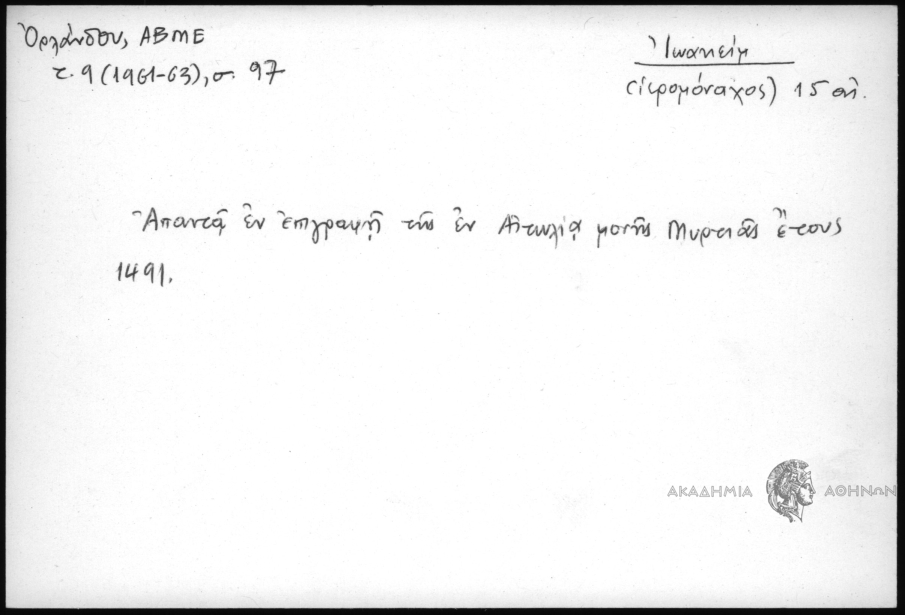 Ὀρλάνδου, ΑΒΜΕ
τ. 9 (1961-63), σ. 97
Ἰωακείμ
(ἱερομόναχος) 15 αἰ.
Ἀπαντᾷ ἐν ἐπιγραφῇ τῆς ἐν Αἰτωλίᾳ μονῆς Μυρτιᾶς ἔτους
1491.
ΑΚΑΔΗΜΙΑ ΑΘΗΝΩΝ